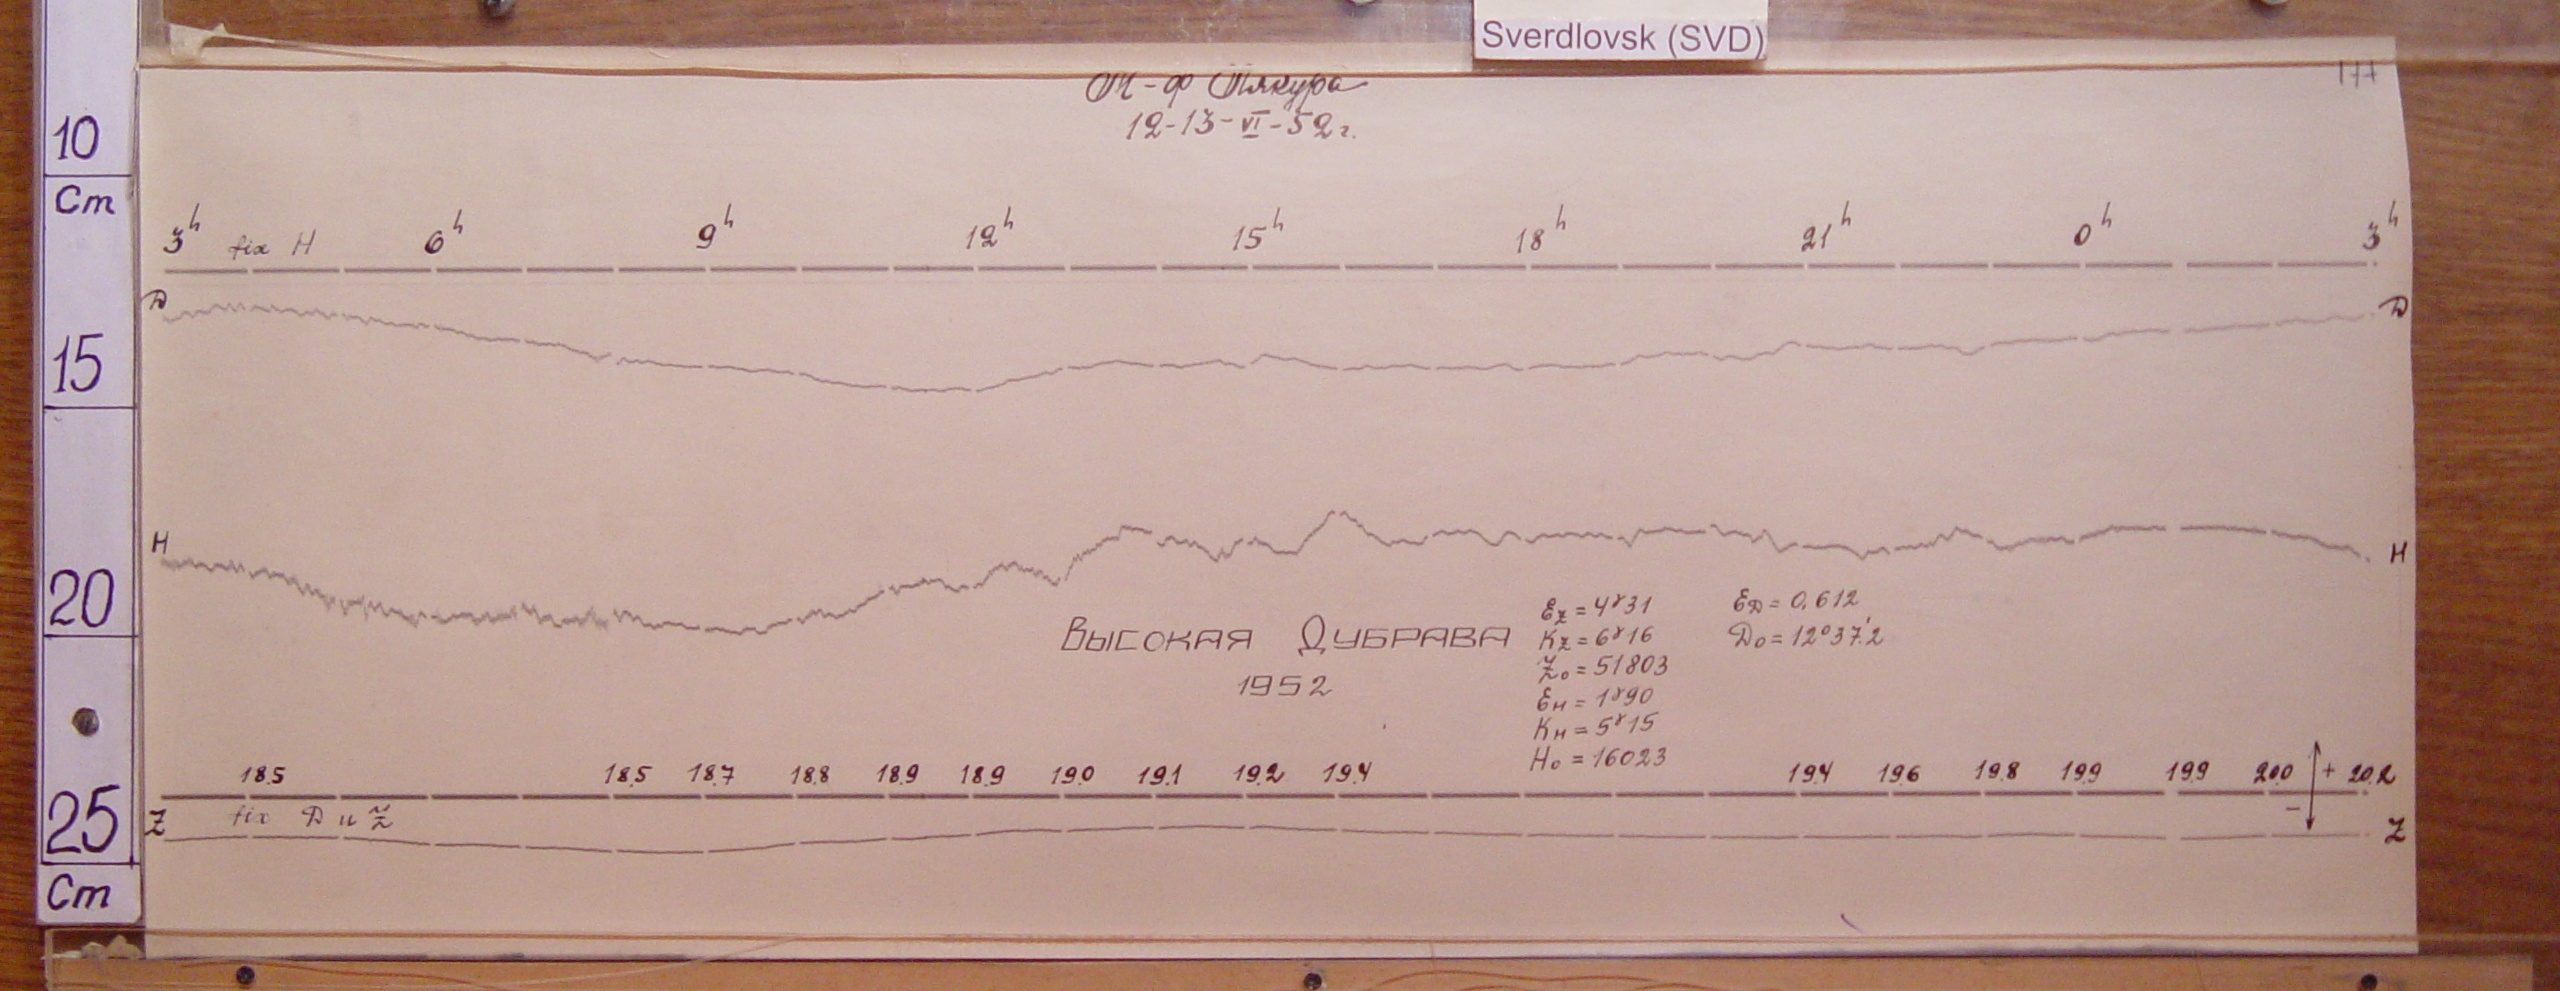 Sverdlovsk (SVD)
М-ф Якура
12-13-VI-52 г.
10
Cm
15
20
25
Cm
3h fix H 6h 9h 12h 15h 18h 21h 0h 3h
D D
H H
Высокая Дубрава
1952
Ez = 4γ31
Kz = 6γ16
Z₀ = 51803
Eн = 1γ90
Kн = 5γ15
H₀ = 16023
ED = 0,612
D₀ = 12°37.'2
18.5 18.5 18.7 18.8 18.9 18.9 19.0 19.1 19.2 19.4 19.4 19.6 19.8 19.9 19.9 20.0 + 20.2
Z fix D и Z − Z